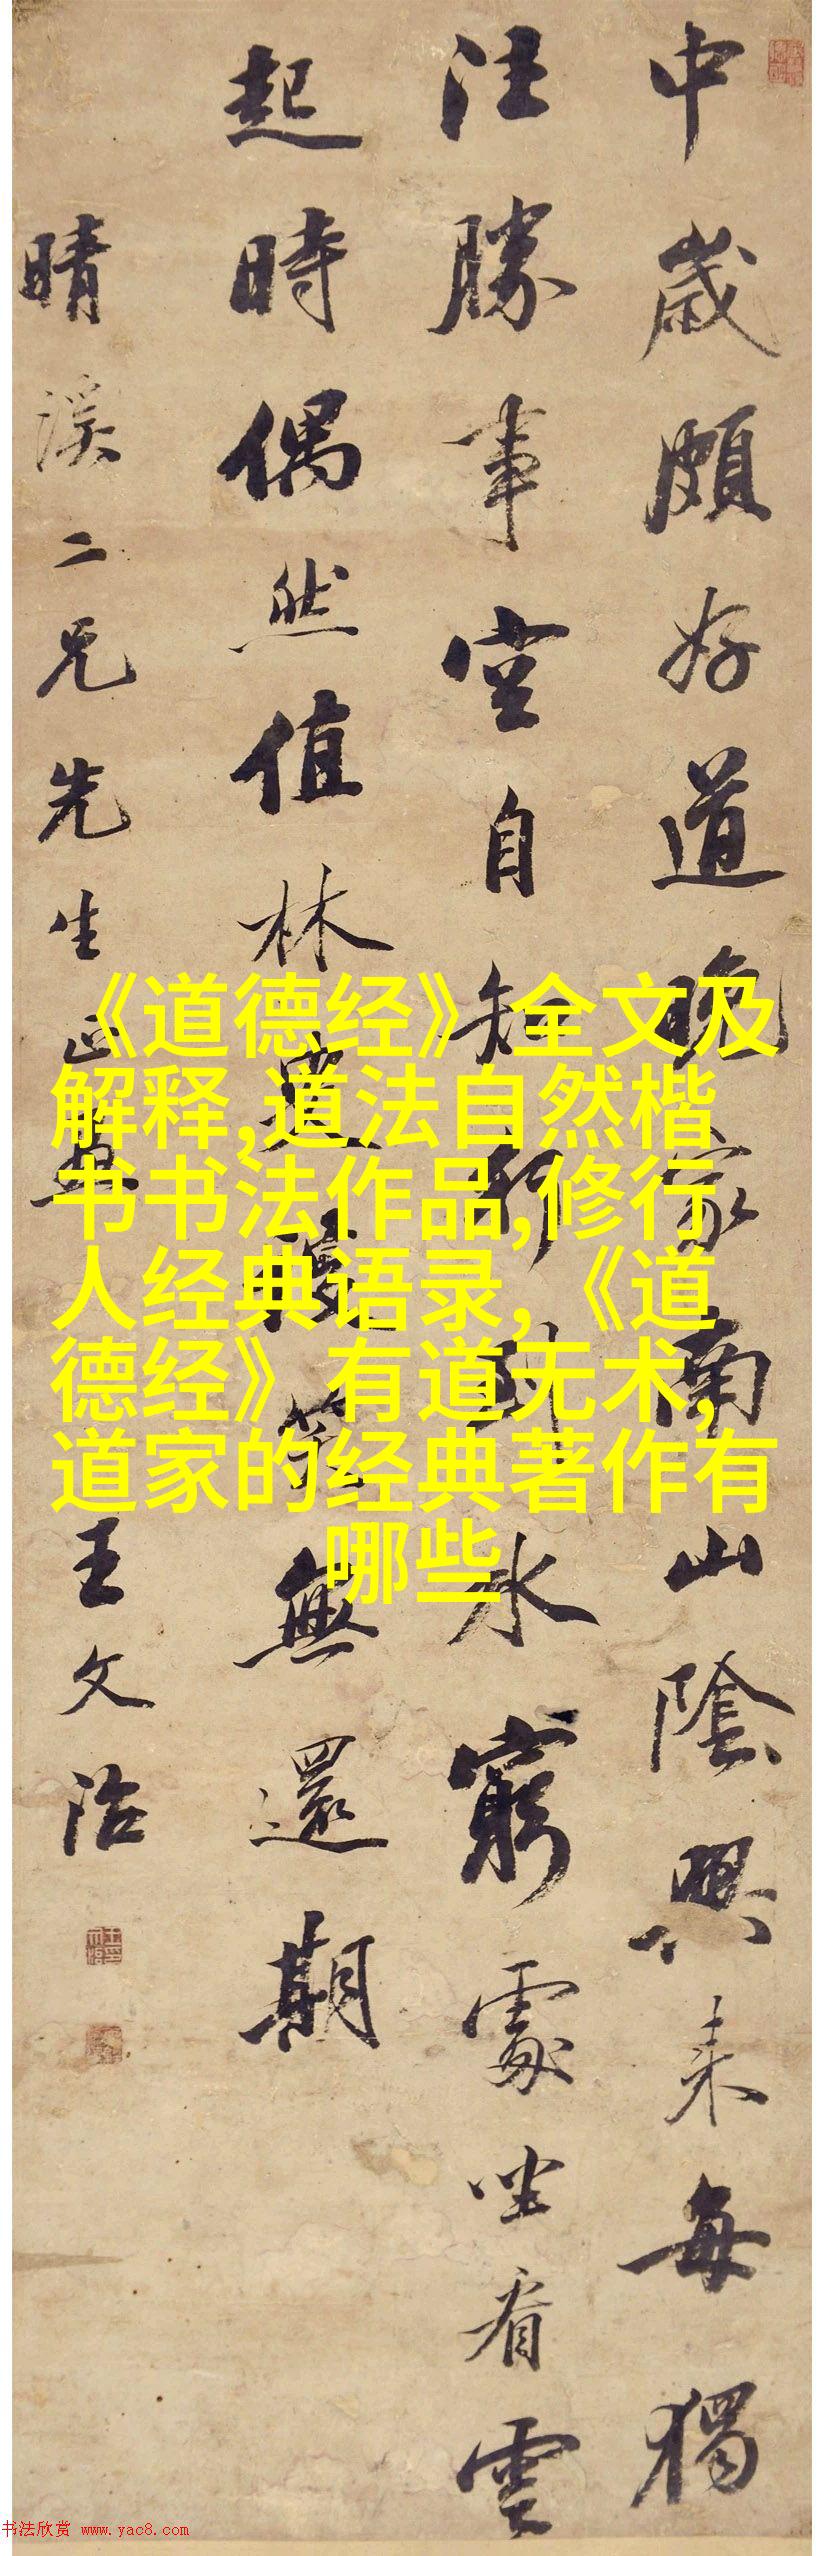 中歲頗好道晚家南山陰興來每獨
往勝事空自知行到水窮處坐看雲
起時偶然值林叟談笑無還期
晴溪二兄先生正
王文治
《道德经》全文及
解释,道法自然楷
书书法作品,修行
人经典语录,《道
德经》有道无术,
道家的经典著作有
哪些
书法欣赏 www.yac8.com